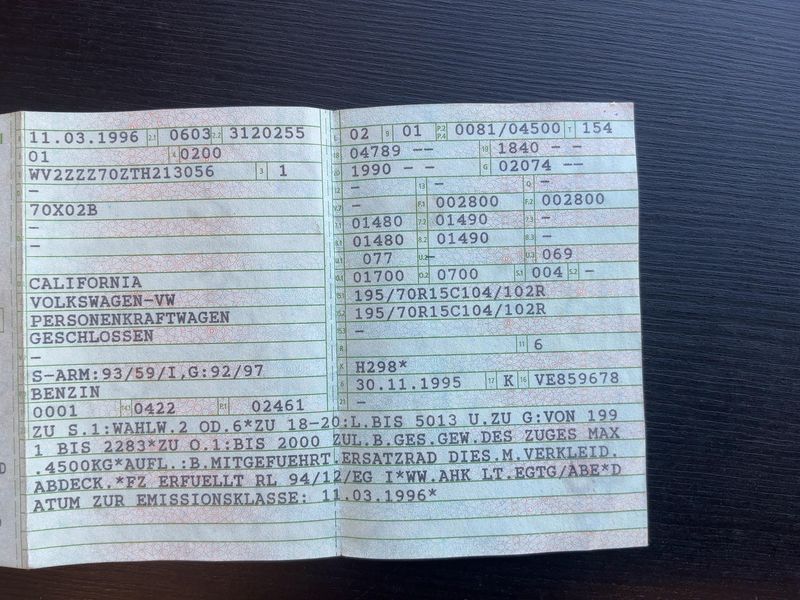 11.03.1996 2.1 0603 2.2 3120255
01 4 0200
WV2ZZZ70ZTH213056 3 1
–
70X02B
–
–
CALIFORNIA
VOLKSWAGEN-VW
PERSONENKRAFTWAGEN
GESCHLOSSEN
–
S-ARM:93/59/I,G:92/97
BENZIN
0001 14.1 0422 P.1 02461
02 9 01 P.2 P.4 0081/04500 T 154
18 04789 –– 19 1840 ––
20 1990 –– G 02074 ––
12 – 13 – Q –
– F.1 002800 F.2 002800
7.1 01480 7.2 01490 7.3 –
8.1 01480 8.2 01490 8.3 –
U.1 077 U.2 – U.3 069
O.1 01700 O.2 0700 S.1 004 S.2 –
15.1 195/70R15C104/102R
15.2 195/70R15C104/102R
15.3 –
R 11 6
K H298*
6 30.11.1995 17 K 16 VE859678
21
ZU S.1:WAHLW.2 OD.6*ZU 18-20:L.BIS 5013 U.ZU G:VON 199
1 BIS 2283*ZU O.1:BIS 2000 ZUL.B.GES.GEW.DES ZUGES MAX
.4500KG*AUFL.:B.MITGEFUEHRT.ERSATZRAD DIES.M.VERKLEID.
ABDECK.*FZ ERFUELLT RL 94/12/EG I*WW.AHK LT.EGTG/ABE*D
ATUM ZUR EMISSIONSKLASSE: 11.03.1996*